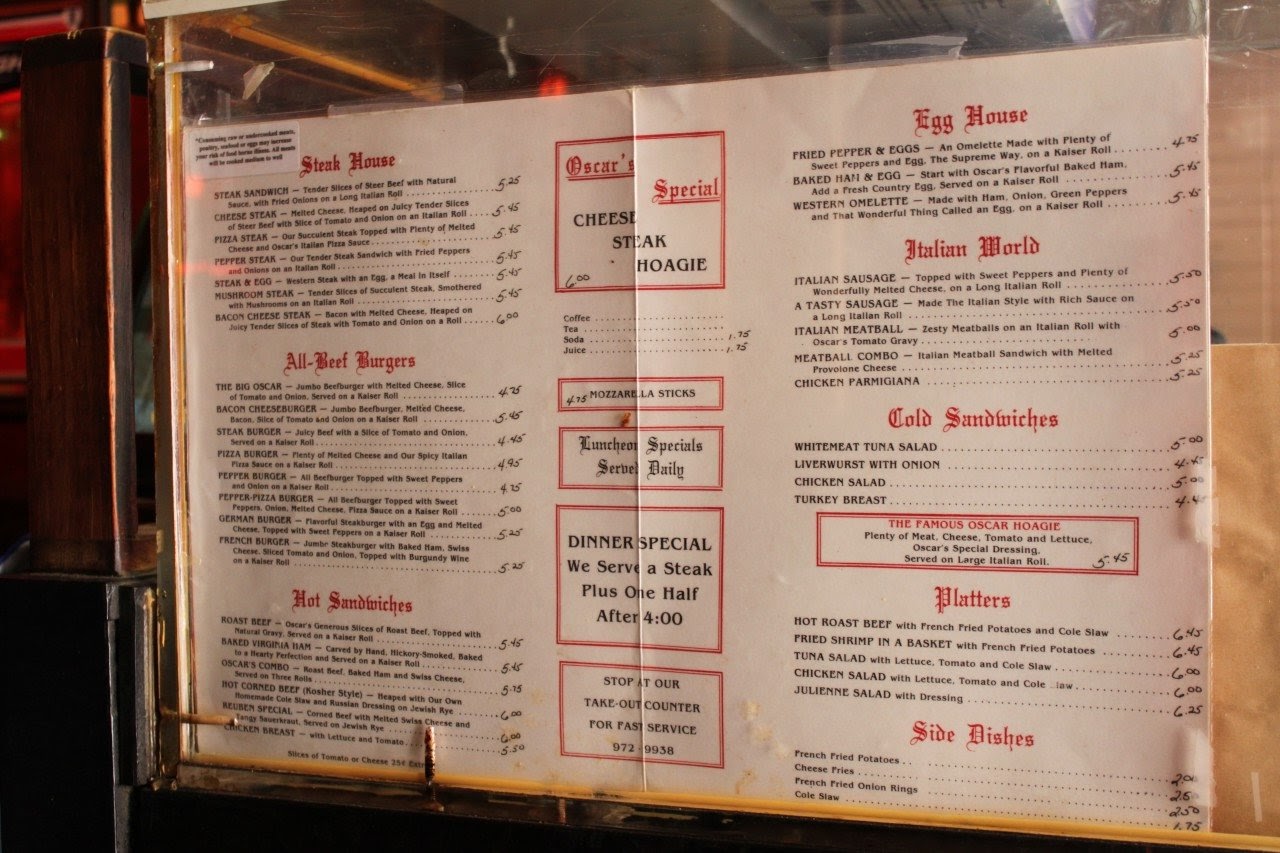 *Consuming raw or undercooked meats,
poultry, seafood or eggs may increase
your risk of food borne illness. All meats
will be cooked medium to well
Steak House
STEAK SANDWICH — Tender Slices of Steer Beef with Natural
Sauce, with Fried Onions on a Long Italian Roll 5.25
CHEESE STEAK — Melted Cheese, Heaped on Juicy Tender Slices
of Steer Beef with Slice of Tomato and Onion on an Italian Roll 5.45
PIZZA STEAK — Our Succulent Steak Topped with Plenty of Melted
Cheese and Oscar's Italian Pizza Sauce 5.45
PEPPER STEAK — Our Tender Steak Sandwich with Fried Peppers
and Onions on an Italian Roll 5.45
STEAK & EGG — Western Steak with an Egg, a Meal in Itself 5.45
MUSHROOM STEAK — Tender Slices of Succulent Steak, Smothered
with Mushrooms on an Italian Roll 5.45
BACON CHEESE STEAK — Bacon with Melted Cheese, Heaped on
Juicy Tender Slices of Steak with Tomato and Onion on a Roll 6.00
All-Beef Burgers
THE BIG OSCAR — Jumbo Beefburger with Melted Cheese, Slice
of Tomato and Onion, Served on a Kaiser Roll 4.75
BACON CHEESEBURGER — Jumbo Beefburger, Melted Cheese,
Bacon, Slice of Tomato and Onion on a Kaiser Roll 5.45
STEAK BURGER — Juicy Beef with a Slice of Tomato and Onion,
Served on a Kaiser Roll 4.45
PIZZA BURGER — Plenty of Melted Cheese and Our Spicy Italian
Pizza Sauce on a Kaiser Roll 4.95
PEPPER BURGER — All Beefburger Topped with Sweet Peppers
and Onion on a Kaiser Roll 4.75
PEPPER-PIZZA BURGER — All Beefburger Topped with Sweet
Peppers, Onion, Melted Cheese, Pizza Sauce on a Kaiser Roll 5.00
GERMAN BURGER — Flavorful Steakburger with an Egg and Melted
Cheese, Topped with Sweet Peppers on a Kaiser Roll 5.25
FRENCH BURGER — Jumbo Steakburger with Baked Ham, Swiss
Cheese, Sliced Tomato and Onion, Topped with Burgundy Wine
on a Kaiser Roll 5.25
Hot Sandwiches
ROAST BEEF — Oscar's Generous Slices of Roast Beef, Topped with
Natural Gravy, Served on a Kaiser Roll 5.45
BAKED VIRGINIA HAM — Carved by Hand, Hickory-Smoked, Baked
to a Hearty Perfection and Served on a Kaiser Roll 5.45
OSCAR'S COMBO — Roast Beef, Baked Ham and Swiss Cheese,
Served on Three Rolls 5.75
HOT CORNED BEEF (Kosher Style) — Heaped with Our Own
Homemade Cole Slaw and Russian Dressing on Jewish Rye 6.00
REUBEN SPECIAL — Corned Beef with Melted Swiss Cheese and
Tangy Sauerkraut, Served on Jewish Rye 6.00
CHICKEN BREAST — with Lettuce and Tomato 5.50
Slices of Tomato or Cheese 25¢ Extra
Oscar's
Special
CHEESE
STEAK
HOAGIE
6.00
Coffee
Tea
Soda 1.75
Juice 1.75
4.75 MOZZARELLA STICKS
Luncheon Specials
Served Daily
DINNER SPECIAL
We Serve a Steak
Plus One Half
After 4:00
STOP AT OUR
TAKE-OUT COUNTER
FOR FAST SERVICE
972-9938
Egg House
FRIED PEPPER & EGGS — An Omelette Made with Plenty of
Sweet Peppers and Egg, The Supreme Way, on a Kaiser Roll 4.75
BAKED HAM & EGG — Start with Oscar's Flavorful Baked Ham,
Add a Fresh Country Egg, Served on a Kaiser Roll 5.45
WESTERN OMELETTE — Made with Ham, Onion, Green Peppers
and That Wonderful Thing Called an Egg, on a Kaiser Roll 5.45
Italian World
ITALIAN SAUSAGE — Topped with Sweet Peppers and Plenty of
Wonderfully Melted Cheese, on a Long Italian Roll 5.50
A TASTY SAUSAGE — Made The Italian Style with Rich Sauce on
a Long Italian Roll 5.50
ITALIAN MEATBALL — Zesty Meatballs on an Italian Roll with
Oscar's Tomato Gravy 5.00
MEATBALL COMBO — Italian Meatball Sandwich with Melted
Provolone Cheese 5.25
CHICKEN PARMIGIANA 5.25
Cold Sandwiches
WHITEMEAT TUNA SALAD 5.00
LIVERWURST WITH ONION 4.45
CHICKEN SALAD 5.00
TURKEY BREAST 4.45
THE FAMOUS OSCAR HOAGIE
Plenty of Meat, Cheese, Tomato and Lettuce,
Oscar's Special Dressing,
Served on Large Italian Roll. 5.45
Platters
HOT ROAST BEEF with French Fried Potatoes and Cole Slaw 6.45
FRIED SHRIMP IN A BASKET with French Fried Potatoes 6.45
TUNA SALAD with Lettuce, Tomato and Cole Slaw 6.00
CHICKEN SALAD with Lettuce, Tomato and Cole Slaw 6.00
JULIENNE SALAD with Dressing 6.25
Side Dishes
French Fried Potatoes 2.00
Cheese Fries 2.50
French Fried Onion Rings 2.50
Cole Slaw 1.75